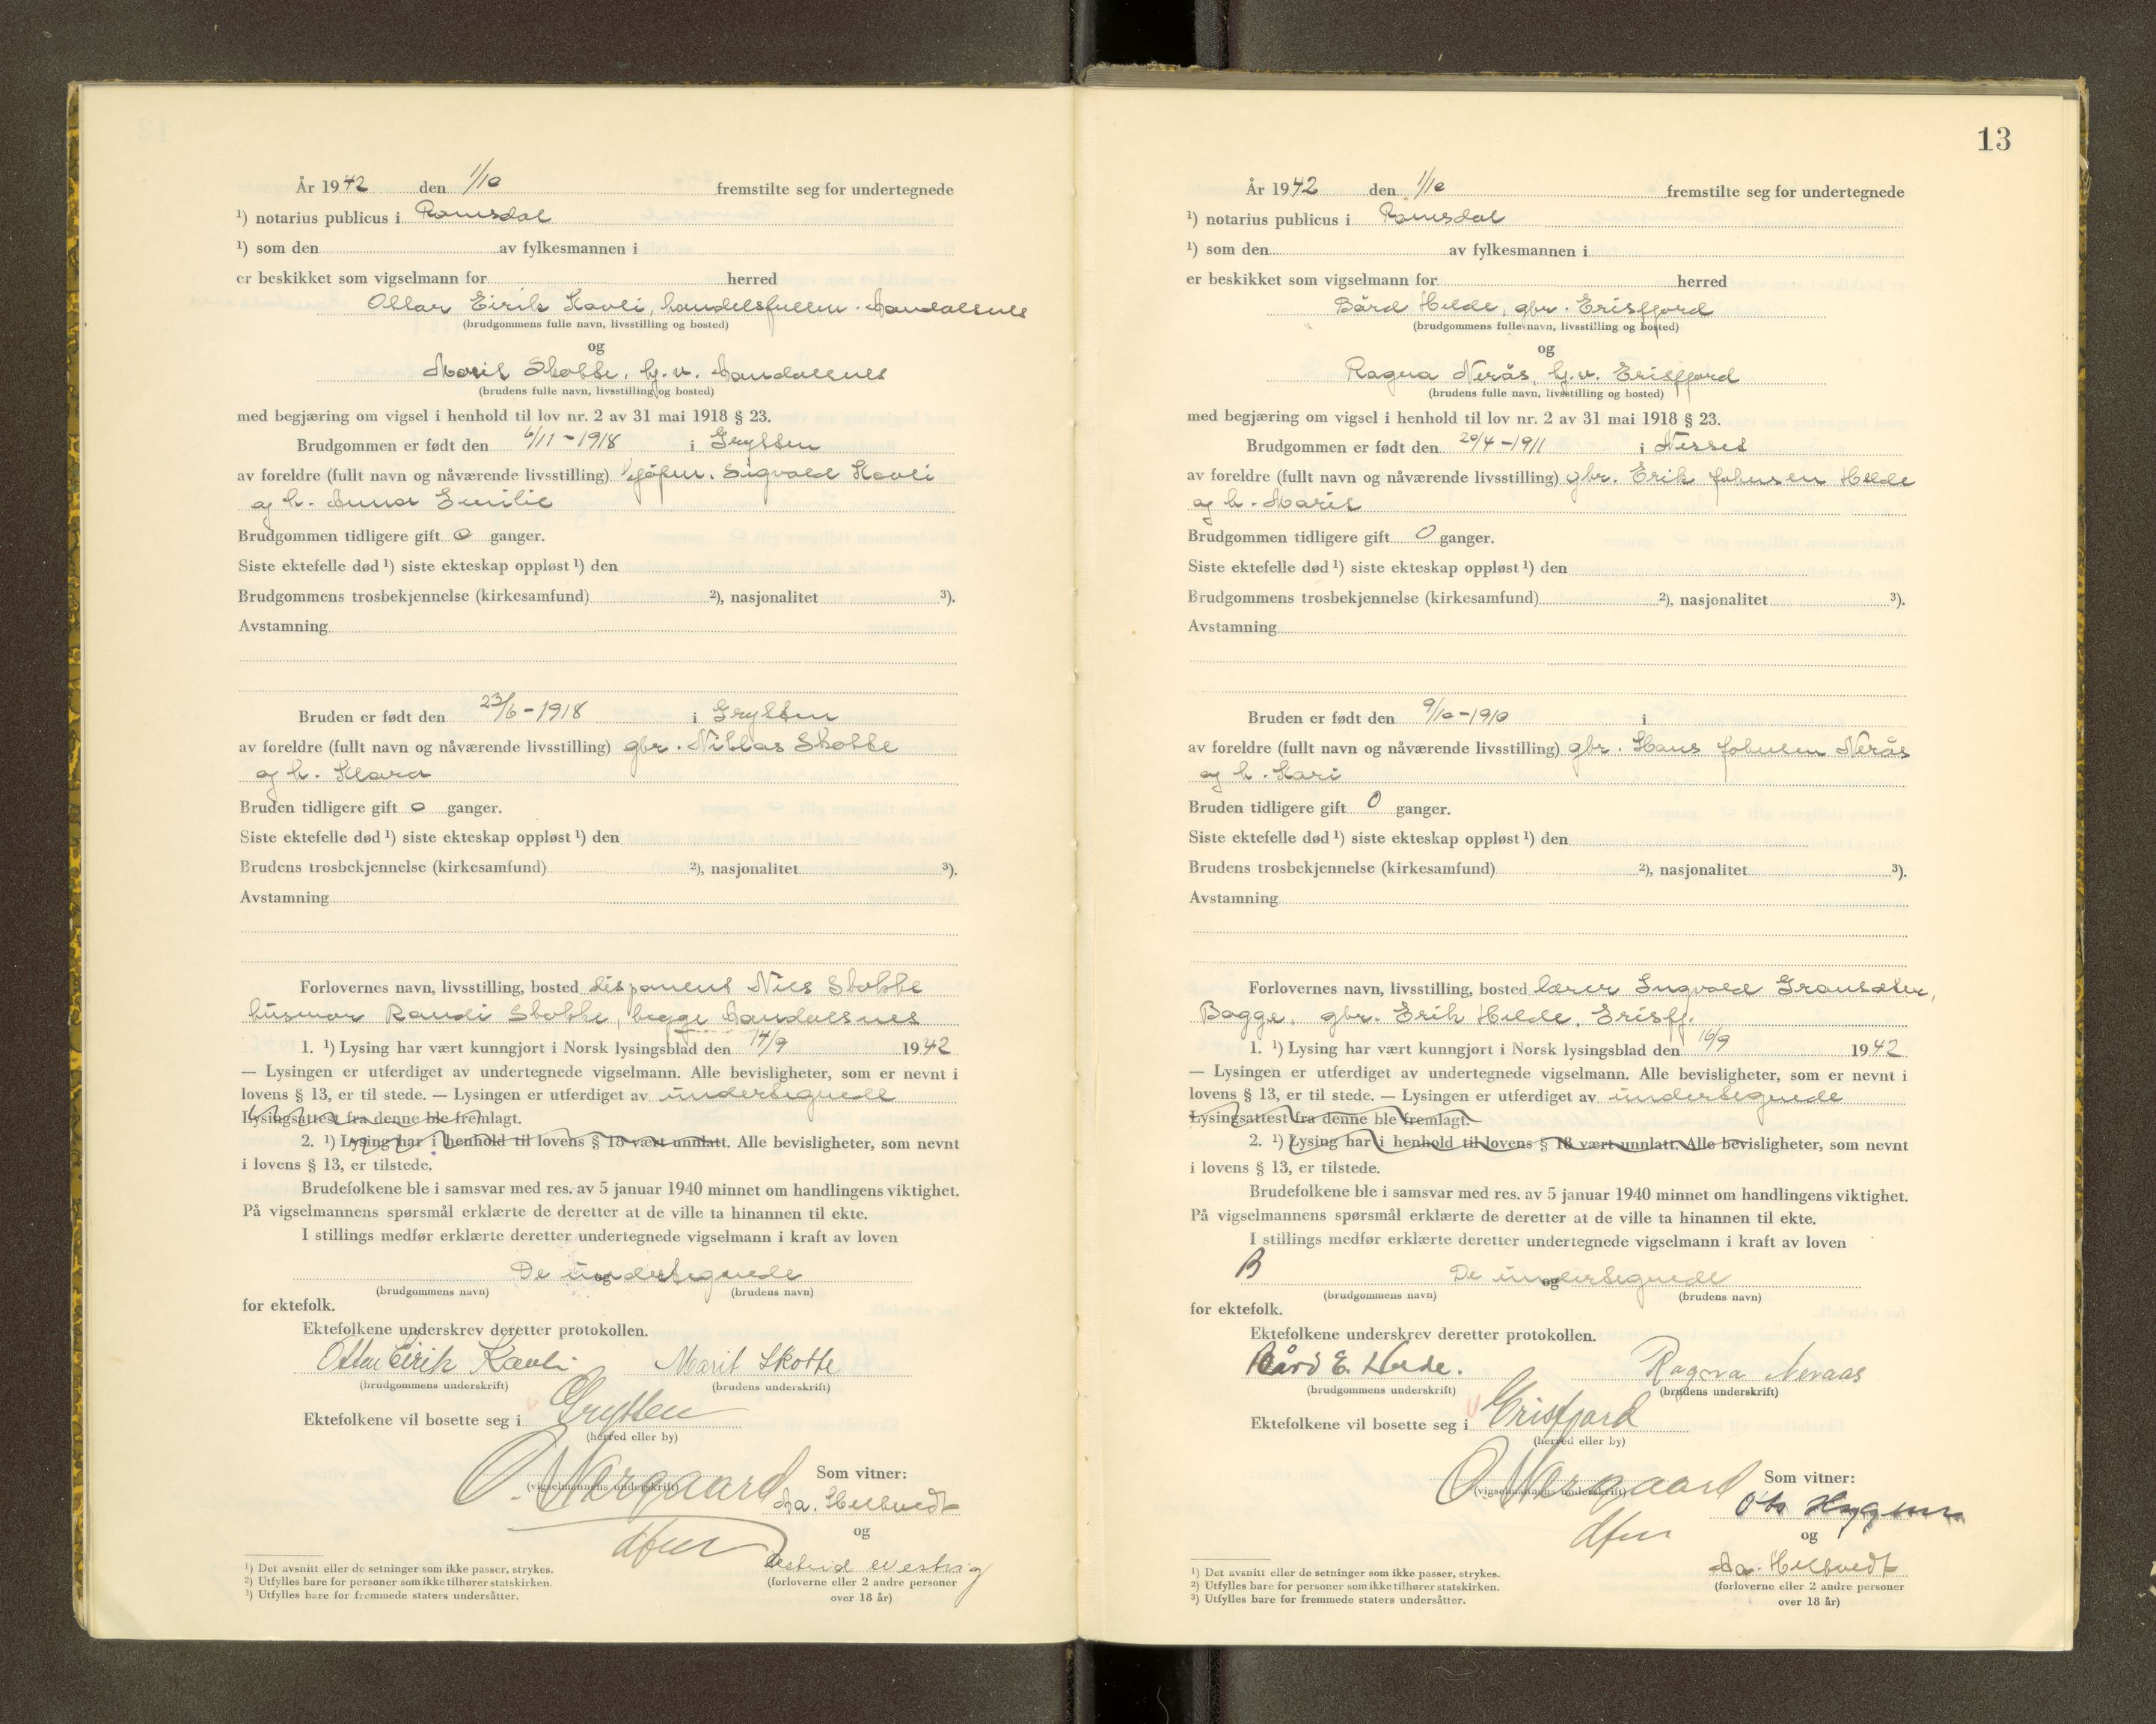 År 1942 den 1/10 fremstilte seg for undertegnede
¹) notarius publicus i Romsdal
¹) som den av fylkesmannen i
er beskikket som vigselmann for herred
Ottar Eirik Kavli, handelsfullm. Aandalsnes
(brudgommens fulle navn, livsstilling og bosted)
og
Marit Skotte, hj.v. Aandalsnes
(brudens fulle navn, livsstilling og bosted)
med begjæring om vigsel i henhold til lov nr. 2 av 31 mai 1918 § 23.
Brudgommen er født den 6/11-1918 i Grytten
av foreldre (fullt navn og nåværende livsstilling) Sigvald Kavli
og h. Anna Emilie
Brudgommen tidligere gift 0 ganger.
Siste ektefelle død ¹) siste ekteskap oppløst ¹) den
Brudgommens trosbekjennelse (kirkesamfund) ²), nasjonalitet ³).
Avstamning
Bruden er født den 23/6-1918 i Grytten
av foreldre (fullt navn og nåværende livsstilling) gbr. Niklas Skotte
og h. Klara
Bruden tidligere gift 0 ganger.
Siste ektefelle død ¹) siste ekteskap oppløst ¹) den
Brudens trosbekjennelse (kirkesamfund) ²), nasjonalitet ³).
Avstamning
Forlovernes navn, livsstilling, bosted disponent Nils Stokke
husmor Randi Stokke, begge Aandalsnes
1. ¹) Lysing har vært kunngjort i Norsk lysingsblad den 14/9 1942
— Lysingen er utferdiget av undertegnede vigselmann. Alle bevisligheter, som er nevnt i
lovens § 13, er til stede. — Lysingen er utferdiget av undertegnede
Lysingsattest fra denne ble fremlagt.
2. ¹) Lysing har i henhold til lovens § 18 vært unnlatt. Alle bevisligheter, som nevnt
i lovens § 13, er tilstede.
Brudefolkene ble i samsvar med res. av 5 januar 1940 minnet om handlingens viktighet.
På vigselmannens spørsmål erklærte de deretter at de ville ta hinannen til ekte.
I stillings medfør erklærte deretter undertegnede vigselmann i kraft av loven
De undertegnede
og
(brudgommens navn) (brudens navn)
for ektefolk.
Ektefolkene underskrev deretter protokollen.
Ottar Eirik Kavli Marit Skotte
(brudgommens underskrift) (brudens underskrift)
Ektefolkene vil bosette seg i Grytten
(herred eller by)
O. Nørgaard Som vitner:
(vigselmannens underskrift) Aa. Heltvedt
og
dfm
(forloverne eller 2 andre personer
over 18 år)
¹) Det avsnitt eller de setninger som ikke passer, strykes.
²) Utfylles bare for personer som ikke tilhører statskirken.
³) Utfylles bare for fremmede staters undersåtter.
13
År 1942 den 1/10 fremstilte seg for undertegnede
¹) notarius publicus i Romsdal
¹) som den av fylkesmannen i
er beskikket som vigselmann for herred
Bård Helde, gbr. Erisfjord
(brudgommens fulle navn, livsstilling og bosted)
og
Ragna Nerås, hj.v. Erisfjord
(brudens fulle navn, livsstilling og bosted)
med begjæring om vigsel i henhold til lov nr. 2 av 31 mai 1918 § 23.
Brudgommen er født den 20/4-1911 i Nesset
av foreldre (fullt navn og nåværende livsstilling) gbr. Erik Johnsen Helde
og h. Marit
Brudgommen tidligere gift 0 ganger.
Siste ektefelle død ¹) siste ekteskap oppløst ¹) den
Brudgommens trosbekjennelse (kirkesamfund) ²), nasjonalitet ³).
Avstamning
Bruden er født den 9/10-1910 i
av foreldre (fullt navn og nåværende livsstilling) gbr. Hans Johnsen Nerås
og h. Kari
Bruden tidligere gift 0 ganger.
Siste ektefelle død ¹) siste ekteskap oppløst ¹) den
Brudens trosbekjennelse (kirkesamfund) ²), nasjonalitet ³).
Avstamning
Forlovernes navn, livsstilling, bosted lærer Ingvald Gransæter,
Bogge, gbr. Erik Helde, Erisfj.
1. ¹) Lysing har vært kunngjort i Norsk lysingsblad den 16/9 1942
— Lysingen er utferdiget av undertegnede vigselmann. Alle bevisligheter, som er nevnt i
lovens § 13, er til stede. — Lysingen er utferdiget av undertegnede
Lysingsattest fra denne ble fremlagt.
2. ¹) Lysing har i henhold til lovens § 18 vært unnlatt. Alle bevisligheter, som nevnt
i lovens § 13, er tilstede.
Brudefolkene ble i samsvar med res. av 5 januar 1940 minnet om handlingens viktighet.
På vigselmannens spørsmål erklærte de deretter at de ville ta hinannen til ekte.
I stillings medfør erklærte deretter undertegnede vigselmann i kraft av loven
B De undertegnede
og
(brudgommens navn) (brudens navn)
for ektefolk.
Ektefolkene underskrev deretter protokollen.
Bård E. Helde. Ragna Neraas
(brudgommens underskrift) (brudens underskrift)
Ektefolkene vil bosette seg i Erisfjord
(herred eller by)
O. Nørgaard Som vitner:
(vigselmannens underskrift)
dfm og
Aa. Heltvedt
(forloverne eller 2 andre personer
over 18 år)
¹) Det avsnitt eller de setninger som ikke passer, strykes.
²) Utfylles bare for personer som ikke tilhører statskirken.
³) Utfylles bare for fremmede staters undersåtter.